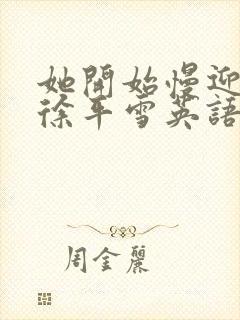 她開始慢迎
徐平雪英語
周金麗